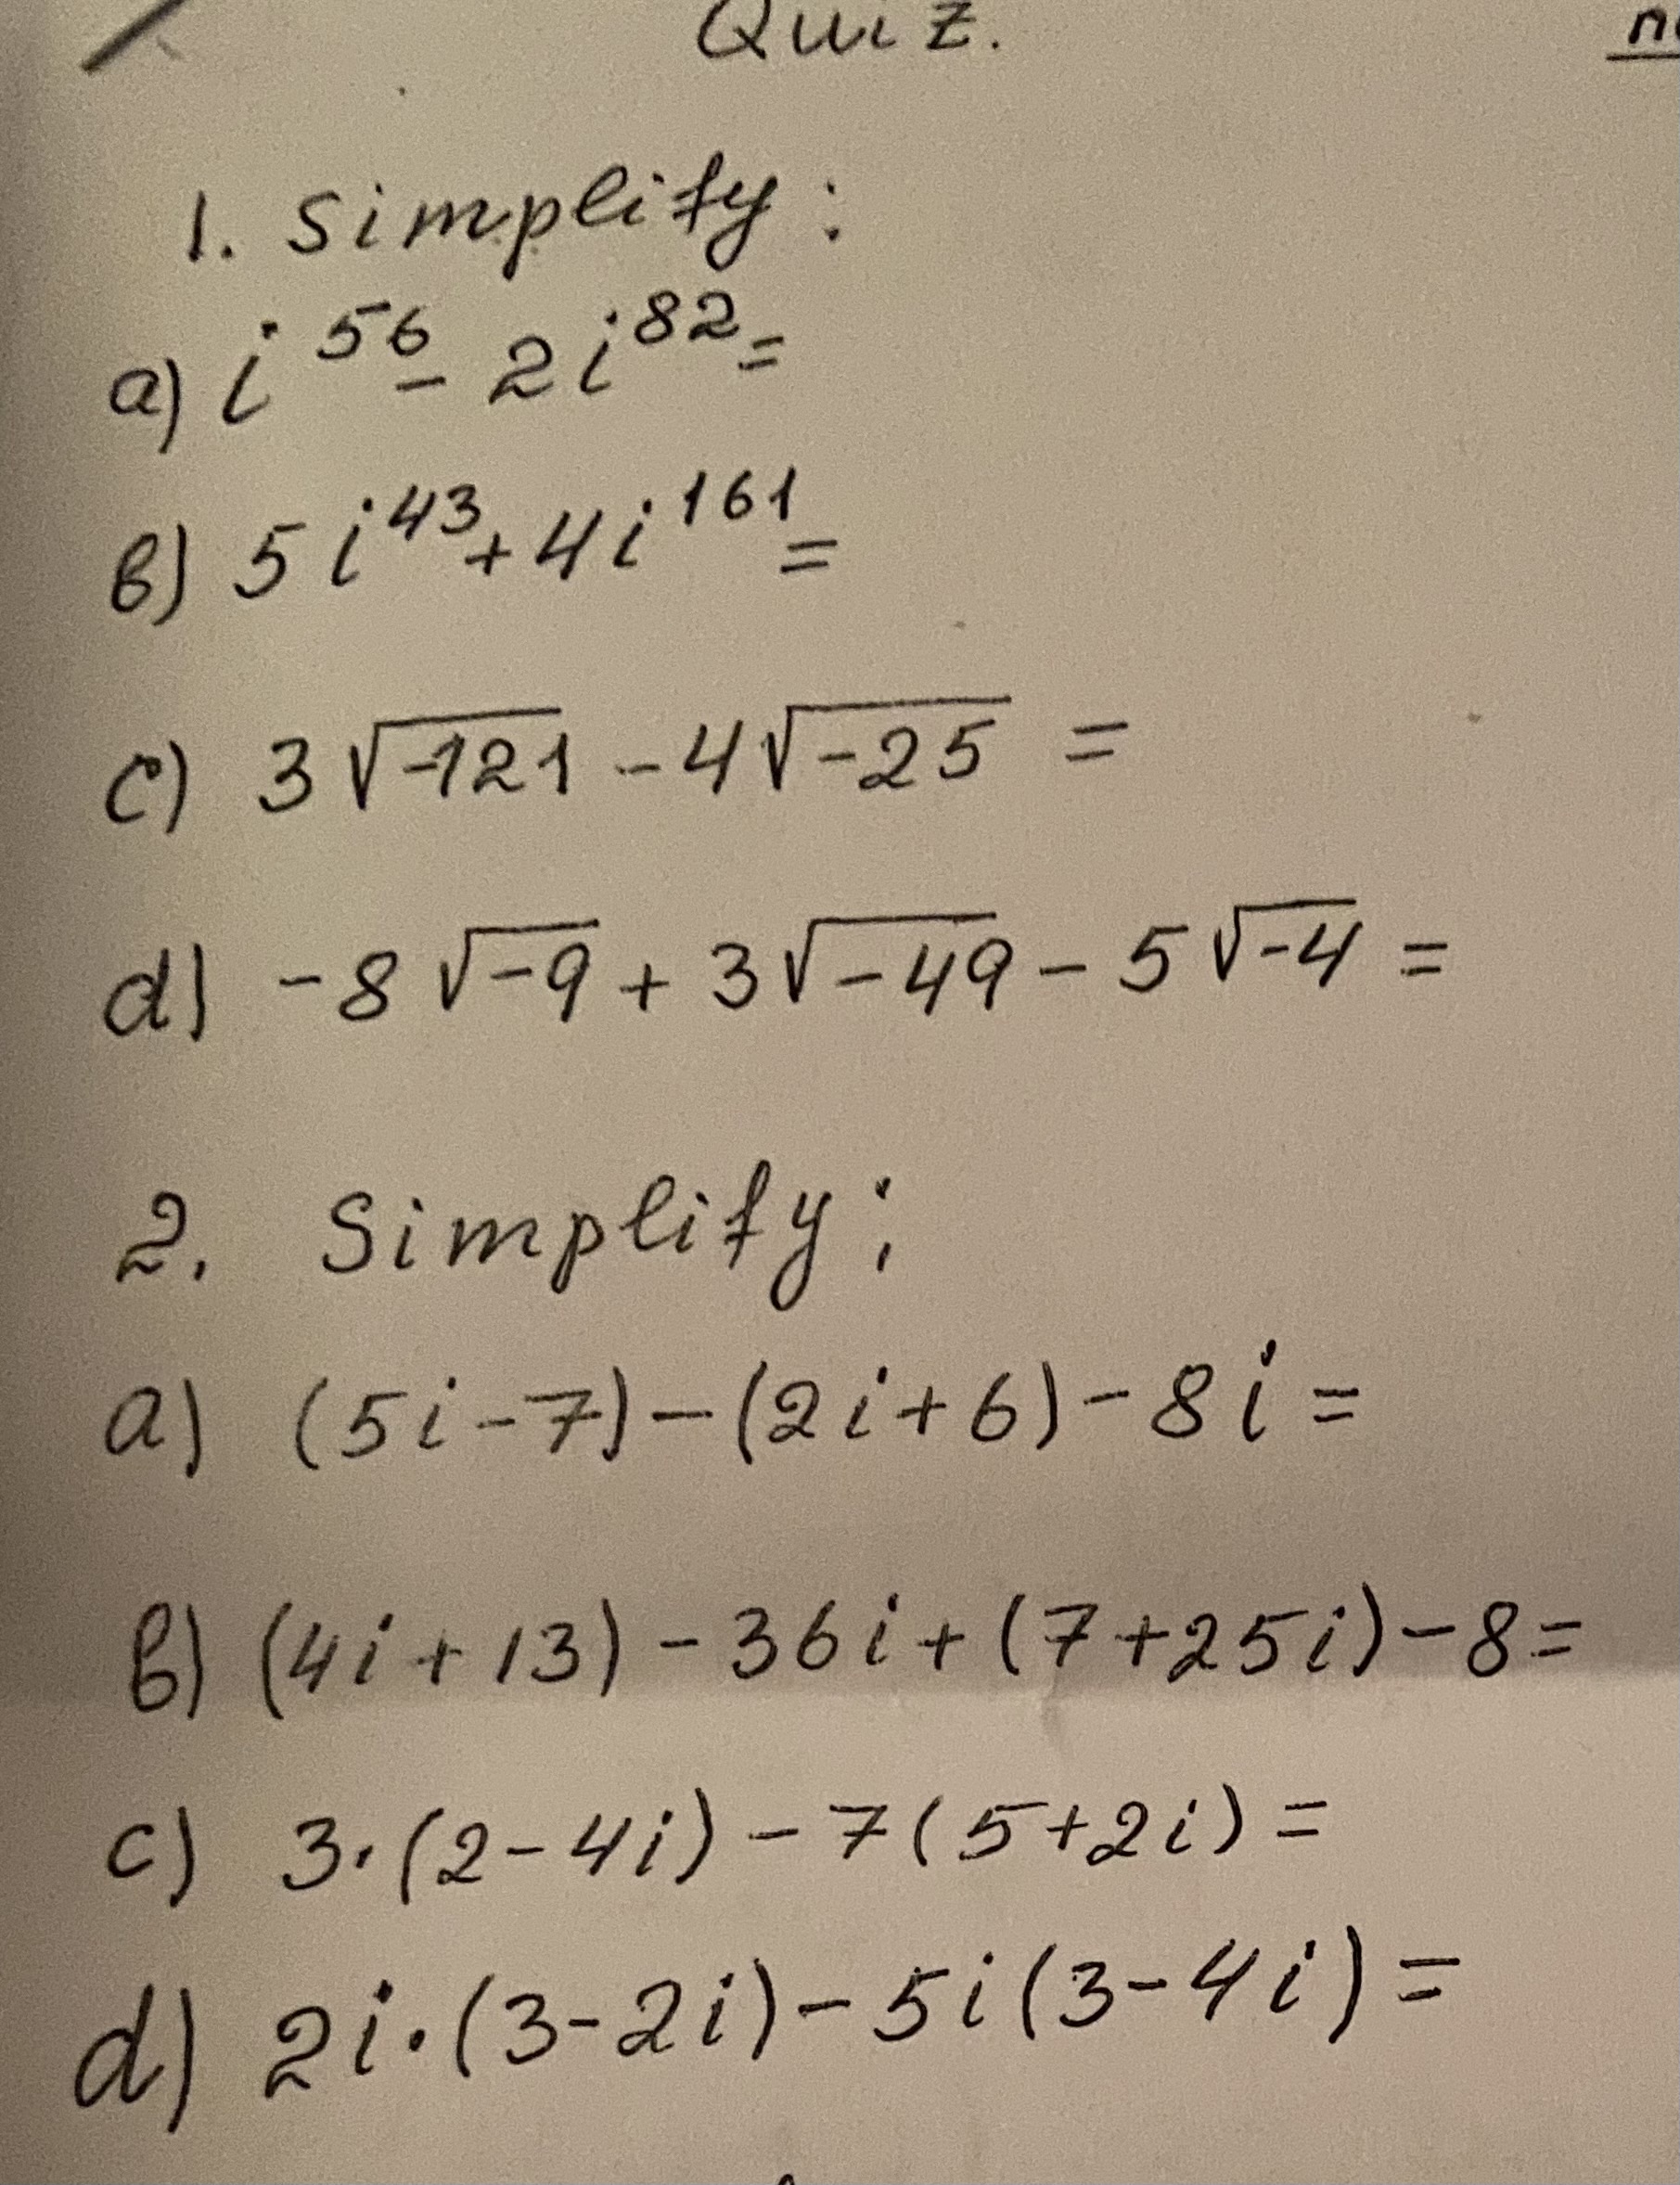 Quiz.
1. Simplify:
a) i^56 - 2i^82 =
b) 5i^43 + 4i^161 =
c) 3√-121 - 4√-25 =
d) -8√-9 + 3√-49 - 5√-4 =
2. Simplify:
a) (5i-7) - (2i+6) - 8i =
b) (4i+13) - 36i + (7+25i) - 8 =
c) 3·(2-4i) - 7(5+2i) =
d) 2i·(3-2i) - 5i(3-4i) =